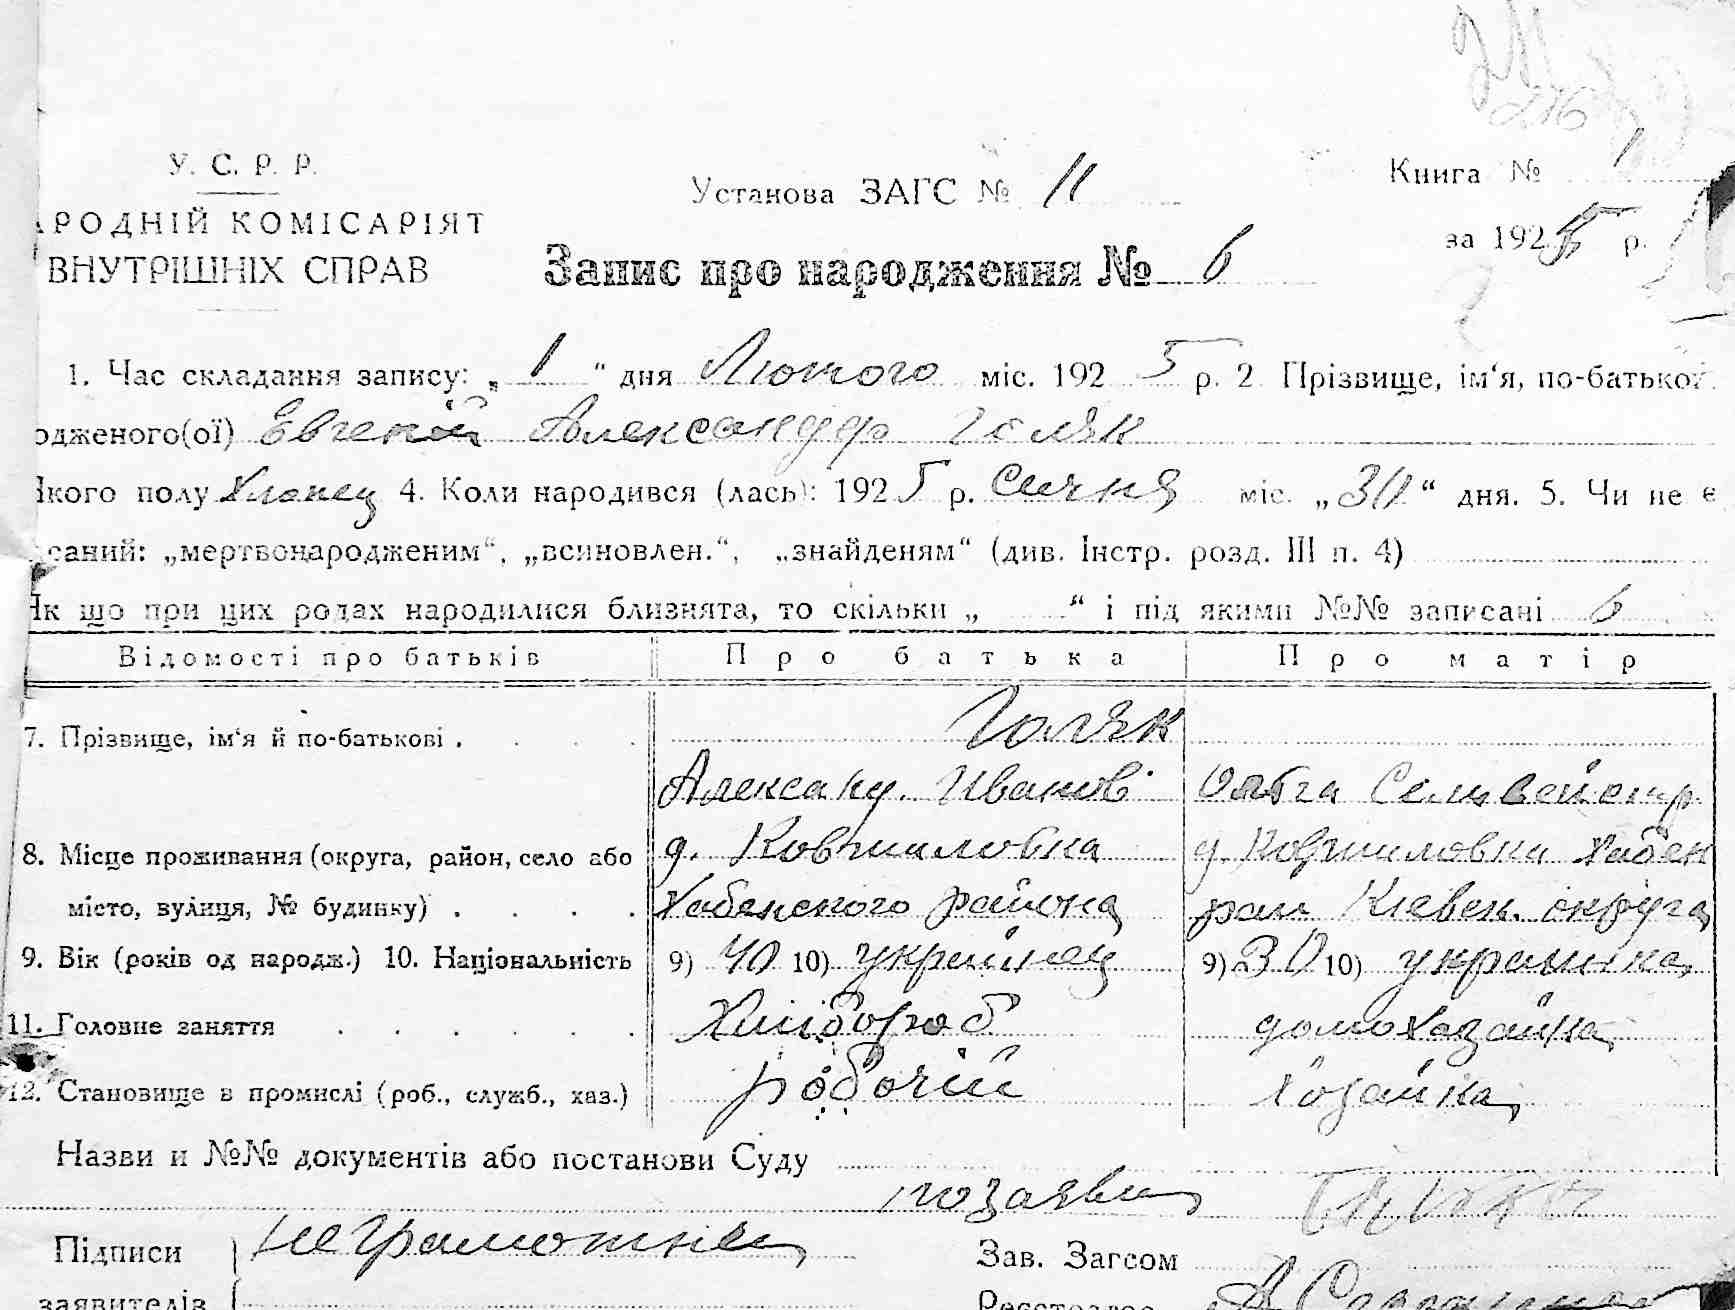 276
У. С. Р. Р.
АРОДНІЙ КОМІСАРІЯТ
ВНУТРІШНІХ СПРАВ
Установа ЗАГС № 11
Книга № 1
за 1925 р.
Запис про народження № 6
1. Час складання запису: „1“ дня Лютого міс. 1925 р. 2 Прізвище, ім‘я, по-батькові
одженого(ої) Евгений Александр Голяк
Якого полу Хлопец 4. Коли народився (лась): 1925 р. Сичня міс. „30“ дня. 5. Чи не є
саний: „мертвонародженим“, „всиновлен.“, „знайденям“ (див. Інстр. розд. III п. 4)
Як що при цих родах народилися близнята, то скільки „ “ і під якими №№ записані 6
Відомості про батьків Про батька Про матір
7. Прізвище, ім‘я й по-батькові . Голяк
Александ. Иванов Ольга Сельвейстр
8. Місце проживання (округа, район, село або д. Ковшиловка д. Ковшиловки Хабен
місто, вулиця, № будинку) . Хабенского района раи Киевск. округа
9. Вік (років од народж.) 10. Національність 9) 40 10) украйнец 9) 30 10) украинка
11. Головне заняття Хлибороб домохазайка
12. Становище в промислі (роб., служб., хаз.) робочій Хозайка
Назви и №№ документів або постанови Суду
по заяви
Підписи неграмотней Зав. Загсом
заявителів